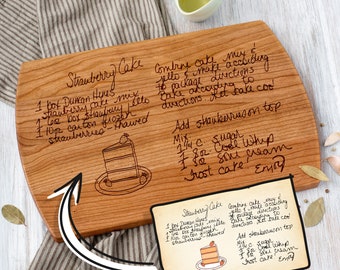 Strawberry Cake
1 box Duncan Hines
strawberry cake mix
1 sm box strawberry jello
1 10oz carton
strawberries thawed
Combine cake mix &
jello & make according
to package directions
Cake according to
directions
cool
Add strawberries on top
Mix
1/4 c. sugar
1 8oz Cool Whip
1 8oz sour cream
frost cake Enjoy
Strawberry Cake
1 box Duncan Hines
strawberry cake mix
1 sm box strawberry jello
1 10oz carton
strawberries thawed
Combine cake mix &
jello & make according
to package directions
Cake according to
directions
cool
Add strawberries on top
Mix
1/4 c. sugar
1 8oz Cool Whip
1 8oz sour cream
frost cake Enjoy